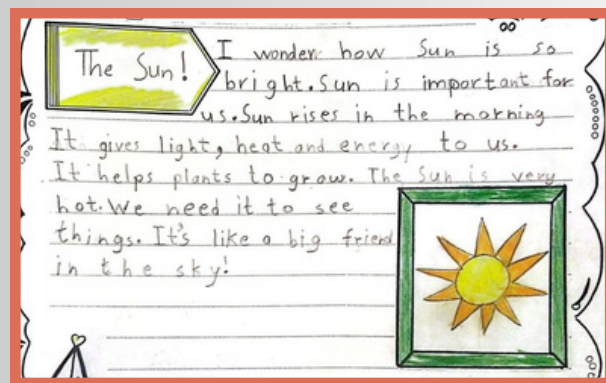 The Sun!
I wonder how Sun is so
bright. Sun is important for
us. Sun rises in the morning
It gives light, heat and energy to us.
It helps plants to grow. The Sun is very
hot. We need it to see
things. It's like a big friend
in the sky!